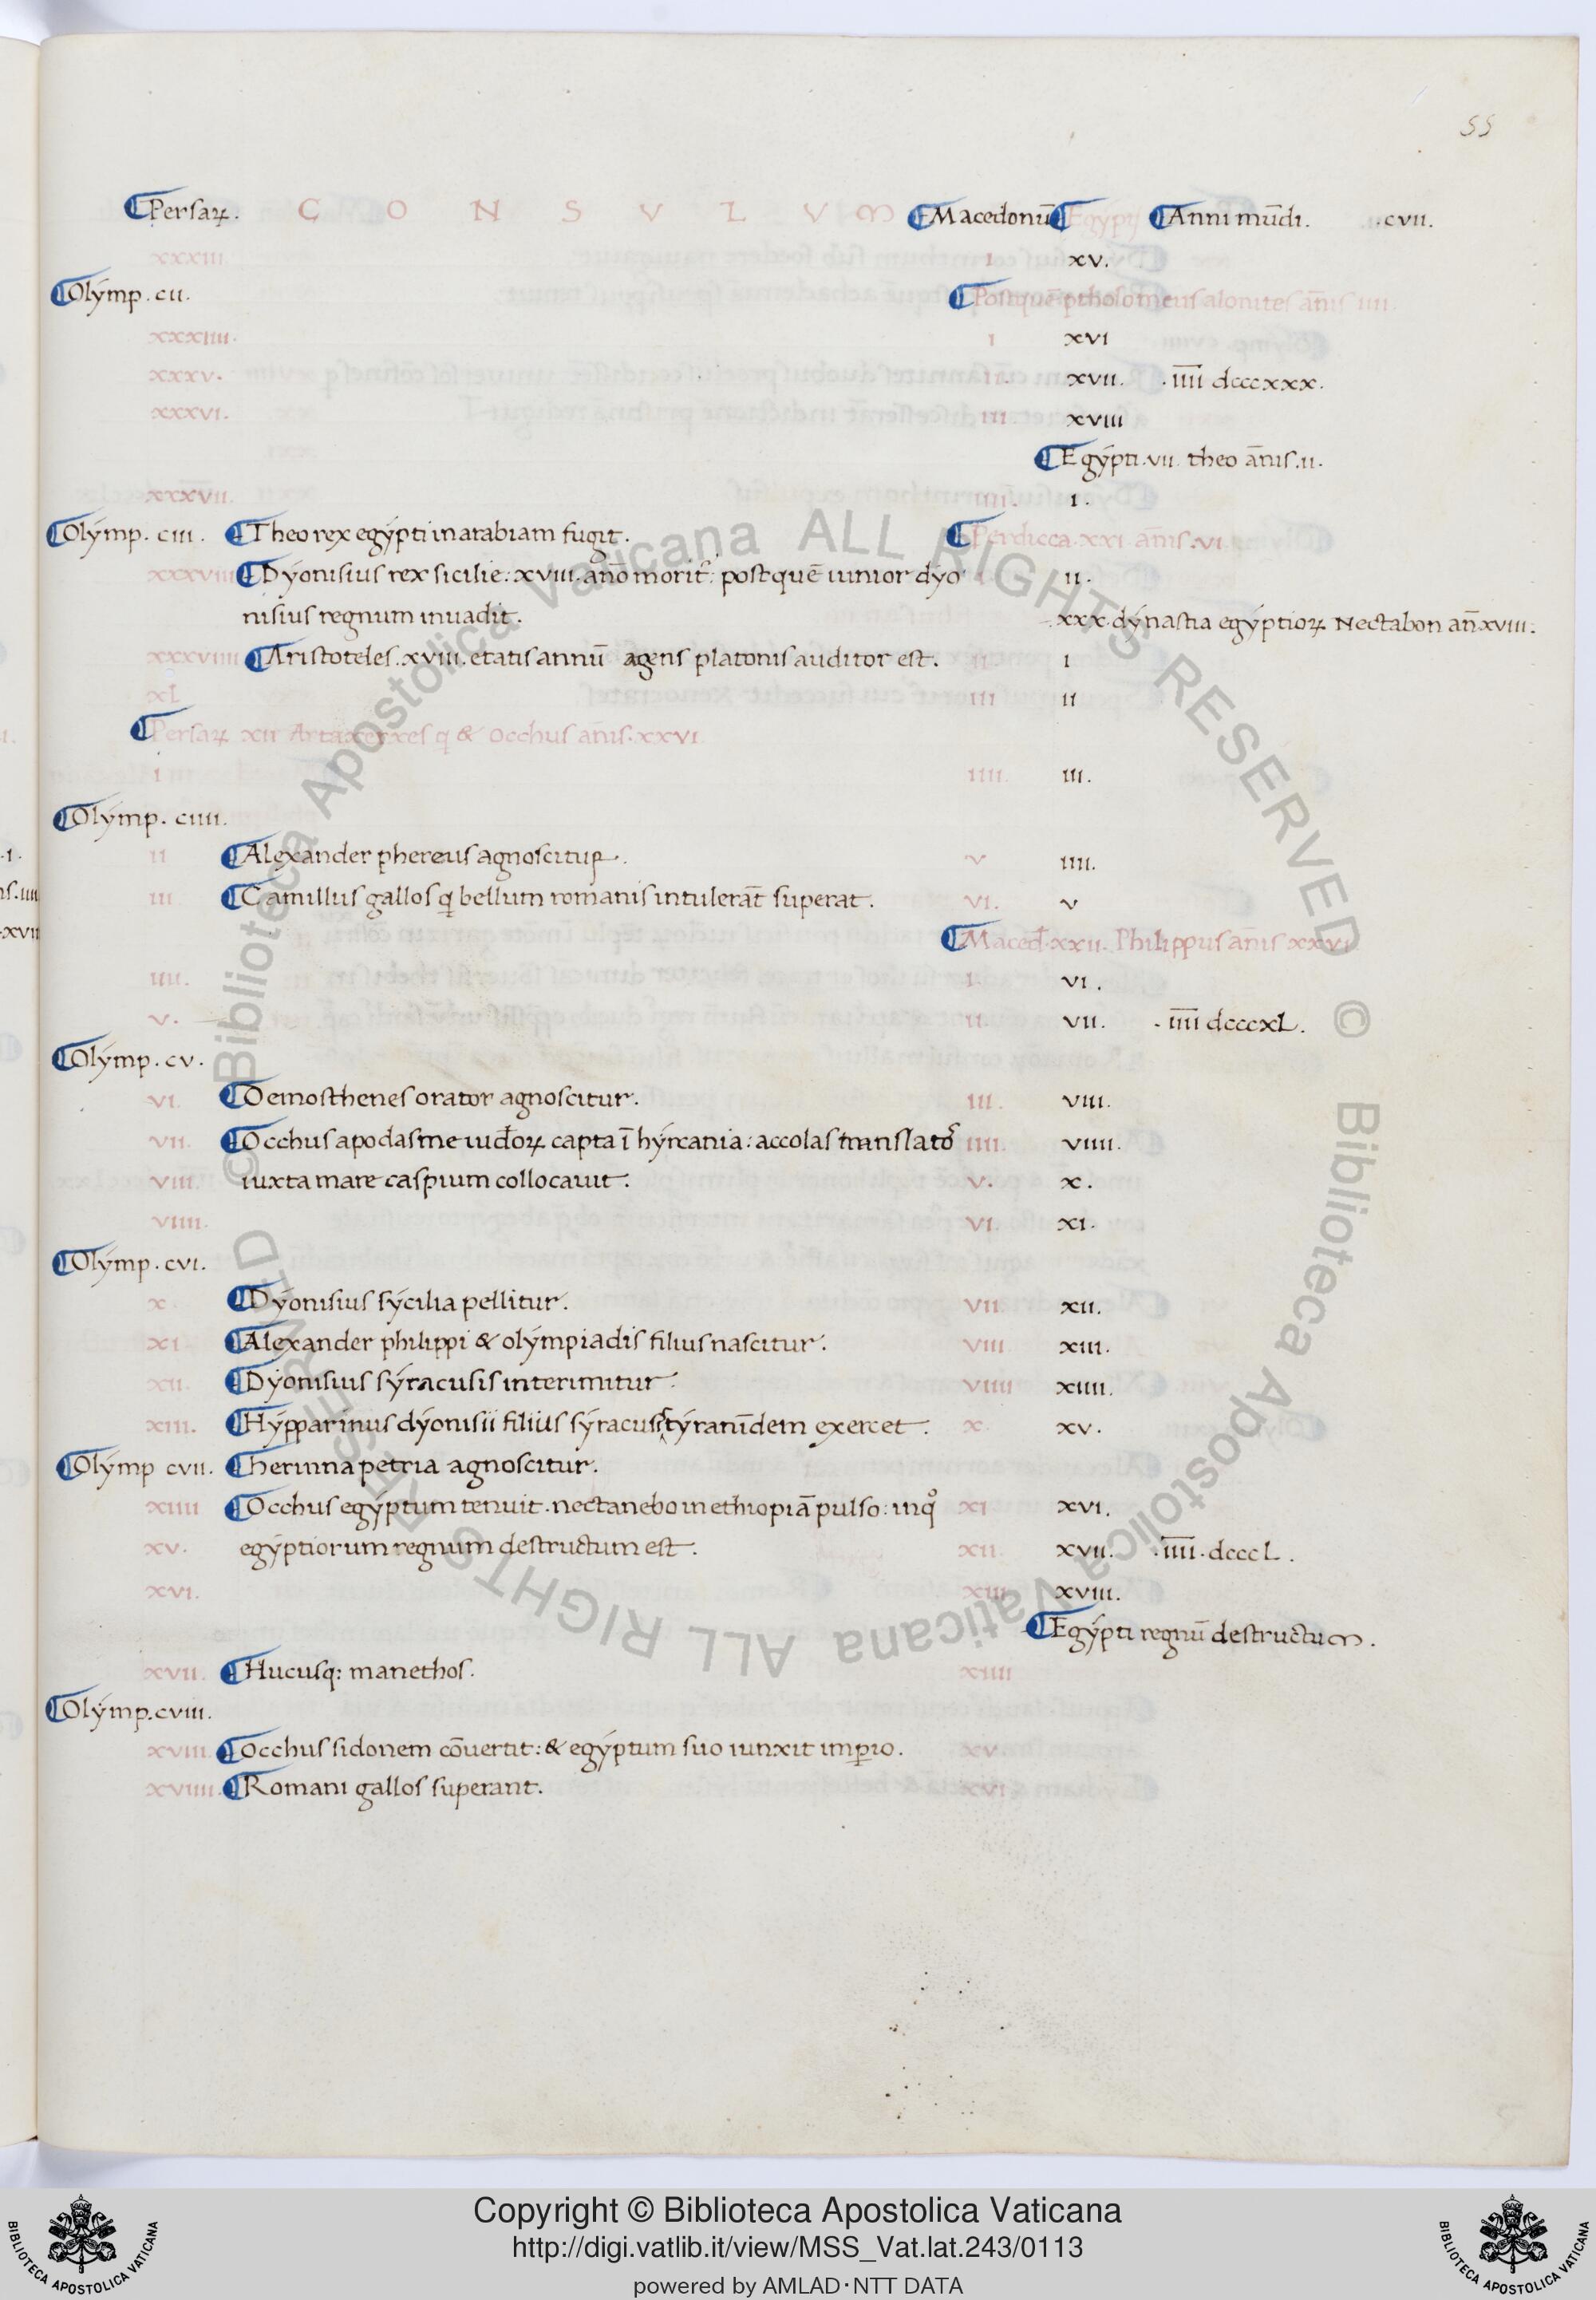 55
¶Persaꝝ. C O N S V L V M ¶Macedonū ¶Egypti ¶Anni mūdi. cvii.
xxxiii. i xv.
¶Olymp. cii. ¶Postquē ptholomeus alorites ānis iiii.
xxxiiii. i xvi
xxxv. ii. xvii. .iiii dcccxxx.
xxxvi. iii. xviii
¶Egypti .vii. theo ānis .ii.
xxxvii. iiii. i.
¶Olymp. ciii. ¶Theo rex egypti in arabiam fugit. ¶Perdicca xxi ānis .vi.
xxxviii ¶Dyonisius rex sicilie: xviii. año morit: post quē iunior dyo i ii.
nisius regnum inuadit. xxx. dynastia egyptioꝝ Nectabon añ xviii.
xxxviiii ¶Aristoteles .xviii. etatis annū agens platonis auditor est. ii. i
xl iii ii
¶Persaꝝ xii Artaxerxes q & Occhus ānis .xxvi
i iiii. iii.
¶Olymp. ciiii.
ii ¶Alexander phereus agnoscitur. v iiii.
iii ¶Camillus gallos q bellum romanis intulerāt superat. vi. v
¶Maced. xxii. Philippus annis xxvi
iiii. i. vi.
v. ii. vii. .iiii dcccxl.
¶Olymp. cv.
vi. ¶Demosthenes orator agnoscitur. iii. viii.
vii. ¶Occhus apodasme iudoꝝ capta ī hyrcania: accolas translatos iiii. viiii.
viii. iuxta mare caspium collocauit. v. x.
viiii. vi. xi.
¶Olymp. cvi.
x. ¶Dyonisius sycilia pellitur. vii. xii.
xi ¶Alexander philippi & olympiadis filius nascitur. viii. xiii.
xii. ¶Dyonisius syracusis interimitur. viiii xiiii.
xiii. ¶Hypparinus dyonisii filius syracusis tyranīdem exercet. x. xv.
¶Olymp cvii. ¶herinna petria agnoscitur.
xiiii ¶Occhus egyptum tenuit. nectanebo in ethiopiā pulso: in qͦ xi xvi.
xv. egyptiorum regnum destructum est. xii. xvii. .iiii. dcccl.
xvi. xiii xviii.
¶Egypti regnū destructum.
xvii. ¶Hucusq: manethos. xiiii
¶Olymp. cviii.
xviii. ¶Occhus sidonem cōuertit: & egyptum suo iunxit imperio. xv
xviiii. ¶Romani gallos superant. xvi
© Biblioteca Apostolica Vaticana ALL RIGHTS RESERVED © Biblioteca Apostolica Vaticana ALL RIGHTS RESERVED
Copyright © Biblioteca Apostolica Vaticana
http://digi.vatlib.it/view/MSS_Vat.lat.243/0113
powered by AMLAD·NTT DATA
BIBLIOTECA APOSTOLICA VATICANA
BIBLIOTECA APOSTOLICA VATICANA